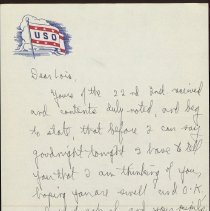 USO
Dear Lois,
Yours of the 22nd Inst received
and contents duly noted, and beg
to state, that before I can say
goodnight tonight I have to tell
you that I am thinking of you,
hoping you are swell and O.K.
and your